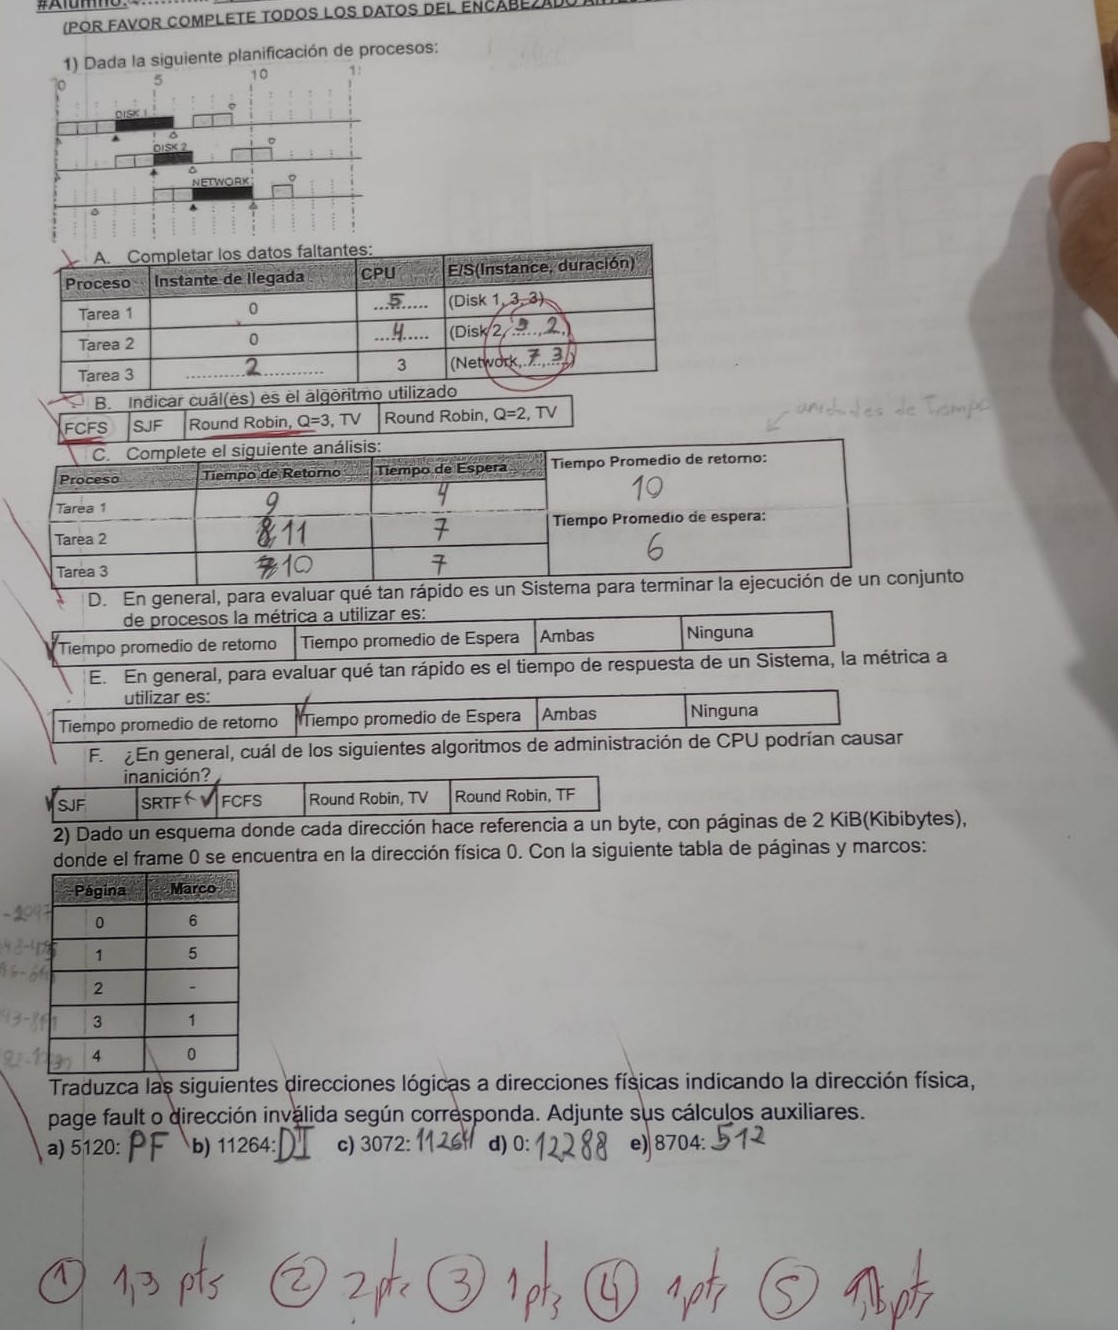 #Alumno:
(POR FAVOR COMPLETE TODOS LOS DATOS DEL ENCABEZADO
1) Dada la siguiente planificación de procesos:
0 5 10 1
DISK 1
DISK 2
NETWORK
A. Completar los datos faltantes:
Proceso Instante de llegada CPU E/S(Instance, duración)
Tarea 1 0 ...5...... (Disk 1, 3, 3)
Tarea 2 0 ....4..... (Disk 2, 3, 2)
Tarea 3 2 3 (Network, 7, 3)
B. Indicar cuál(es) es el algoritmo utilizado
FCFS SJF Round Robin, Q=3, TV Round Robin, Q=2, TV
unidades de Tiempo
C. Complete el siguiente análisis:
Proceso Tiempo de Retorno Tiempo de Espera Tiempo Promedio de retorno:
Tarea 1 9 4 10
Tarea 2 11 7 Tiempo Promedio de espera:
Tarea 3 10 7 6
D. En general, para evaluar qué tan rápido es un Sistema para terminar la ejecución de un conjunto
de procesos la métrica a utilizar es:
Tiempo promedio de retorno Tiempo promedio de Espera Ambas Ninguna
E. En general, para evaluar qué tan rápido es el tiempo de respuesta de un Sistema, la métrica a
utilizar es:
Tiempo promedio de retorno Tiempo promedio de Espera Ambas Ninguna
F. ¿En general, cuál de los siguientes algoritmos de administración de CPU podrían causar
inanición?
SJF SRTF FCFS Round Robin, TV Round Robin, TF
2) Dado un esquema donde cada dirección hace referencia a un byte, con páginas de 2 KiB(Kibibytes),
donde el frame 0 se encuentra en la dirección física 0. Con la siguiente tabla de páginas y marcos:
Página Marco
0 6
1 5
2 -
3 1
4 0
Traduzca las siguientes direcciones lógicas a direcciones físicas indicando la dirección física,
page fault o dirección inválida según corresponda. Adjunte sus cálculos auxiliares.
a) 5120: PF b) 11264: DI c) 3072: 11264 d) 0: 12288 e) 8704: 512
① 1,3 pts ② 2 pts ③ 1 pts ④ 1 pts ⑤ pts